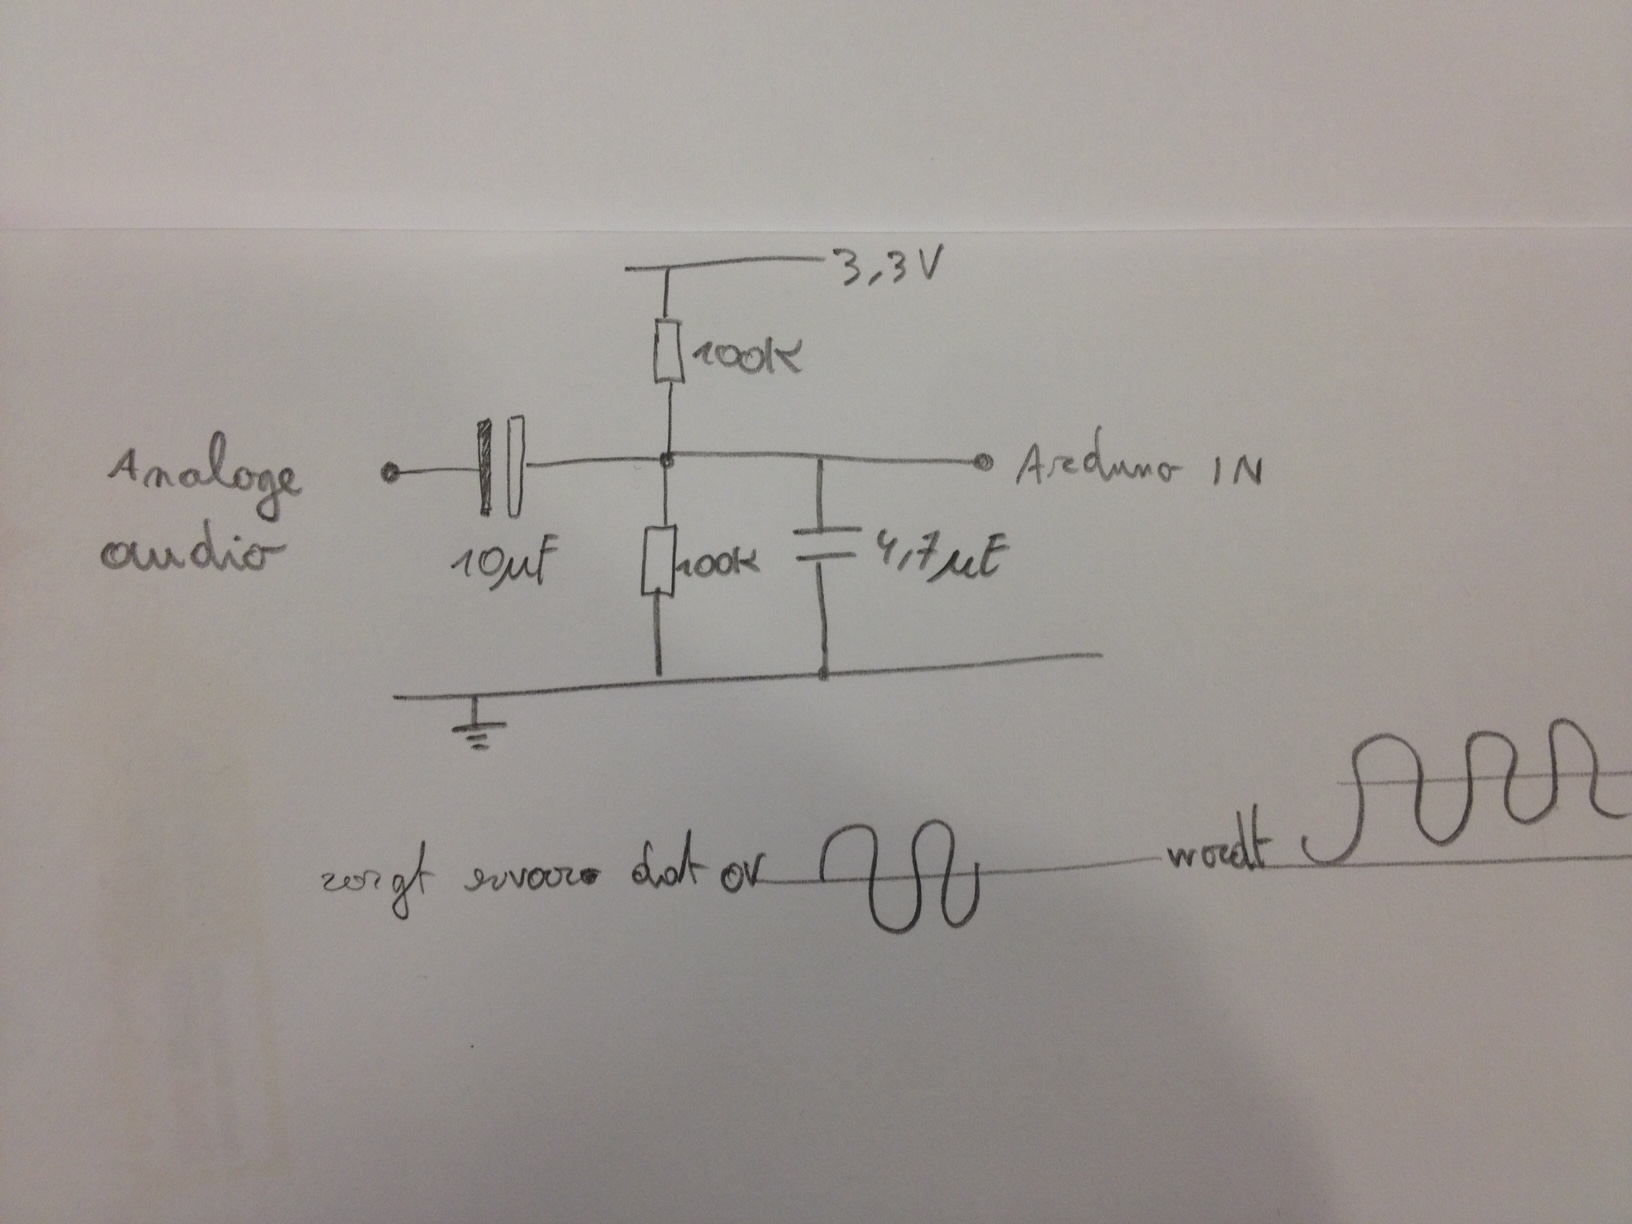 3,3V
100K
Analoge
audio
10µF
100K
4,7µF
Arduino IN
zorgt ervoor dat 0V
wordt